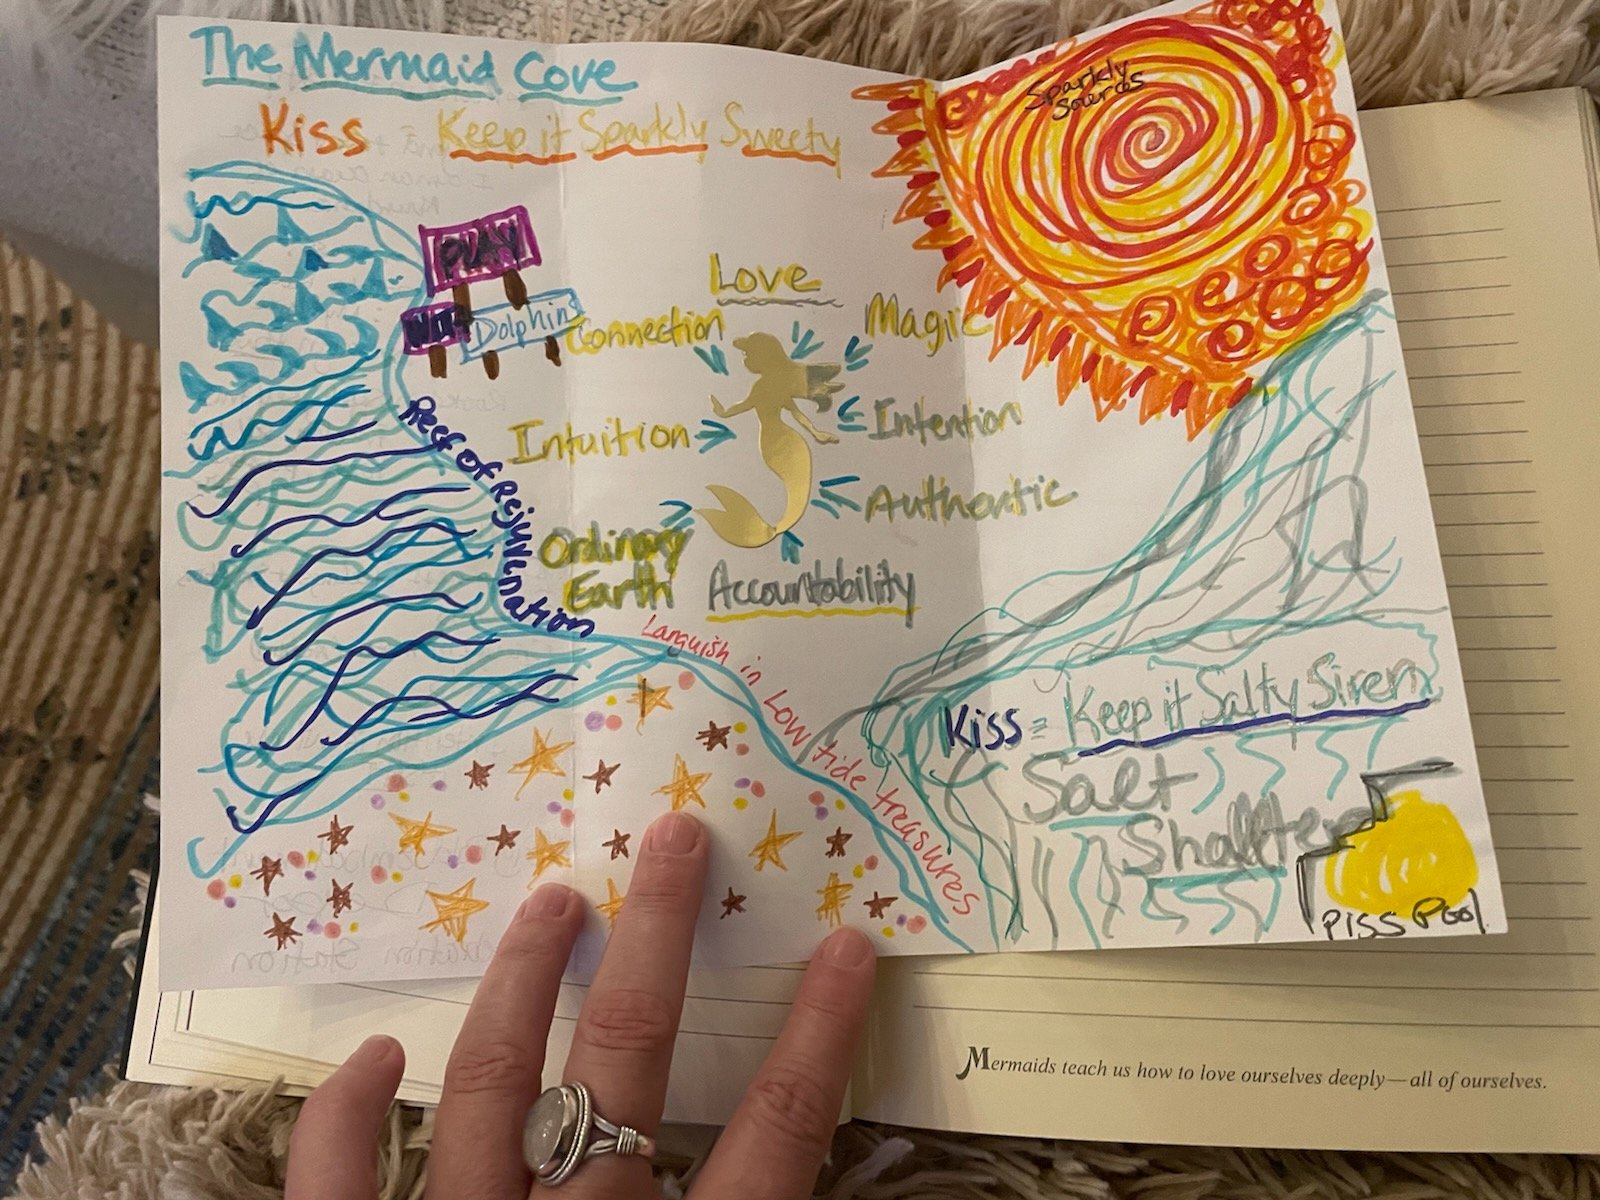 The Mermaid Cove
Kiss = Keep it Sparkly Sweety
Sparkly
Sources
PLAY
WITH Dolphins
Love
Connection
Magic
Intuition
Intention
Authentic
Ordinary
Earth
Accountability
Reef of Rejuvenation
Languish in Low tide treasures
Kiss = Keep it Salty Siren
Salt
Shallter
Piss Pool
Mermaids teach us how to love ourselves deeply—all of ourselves.